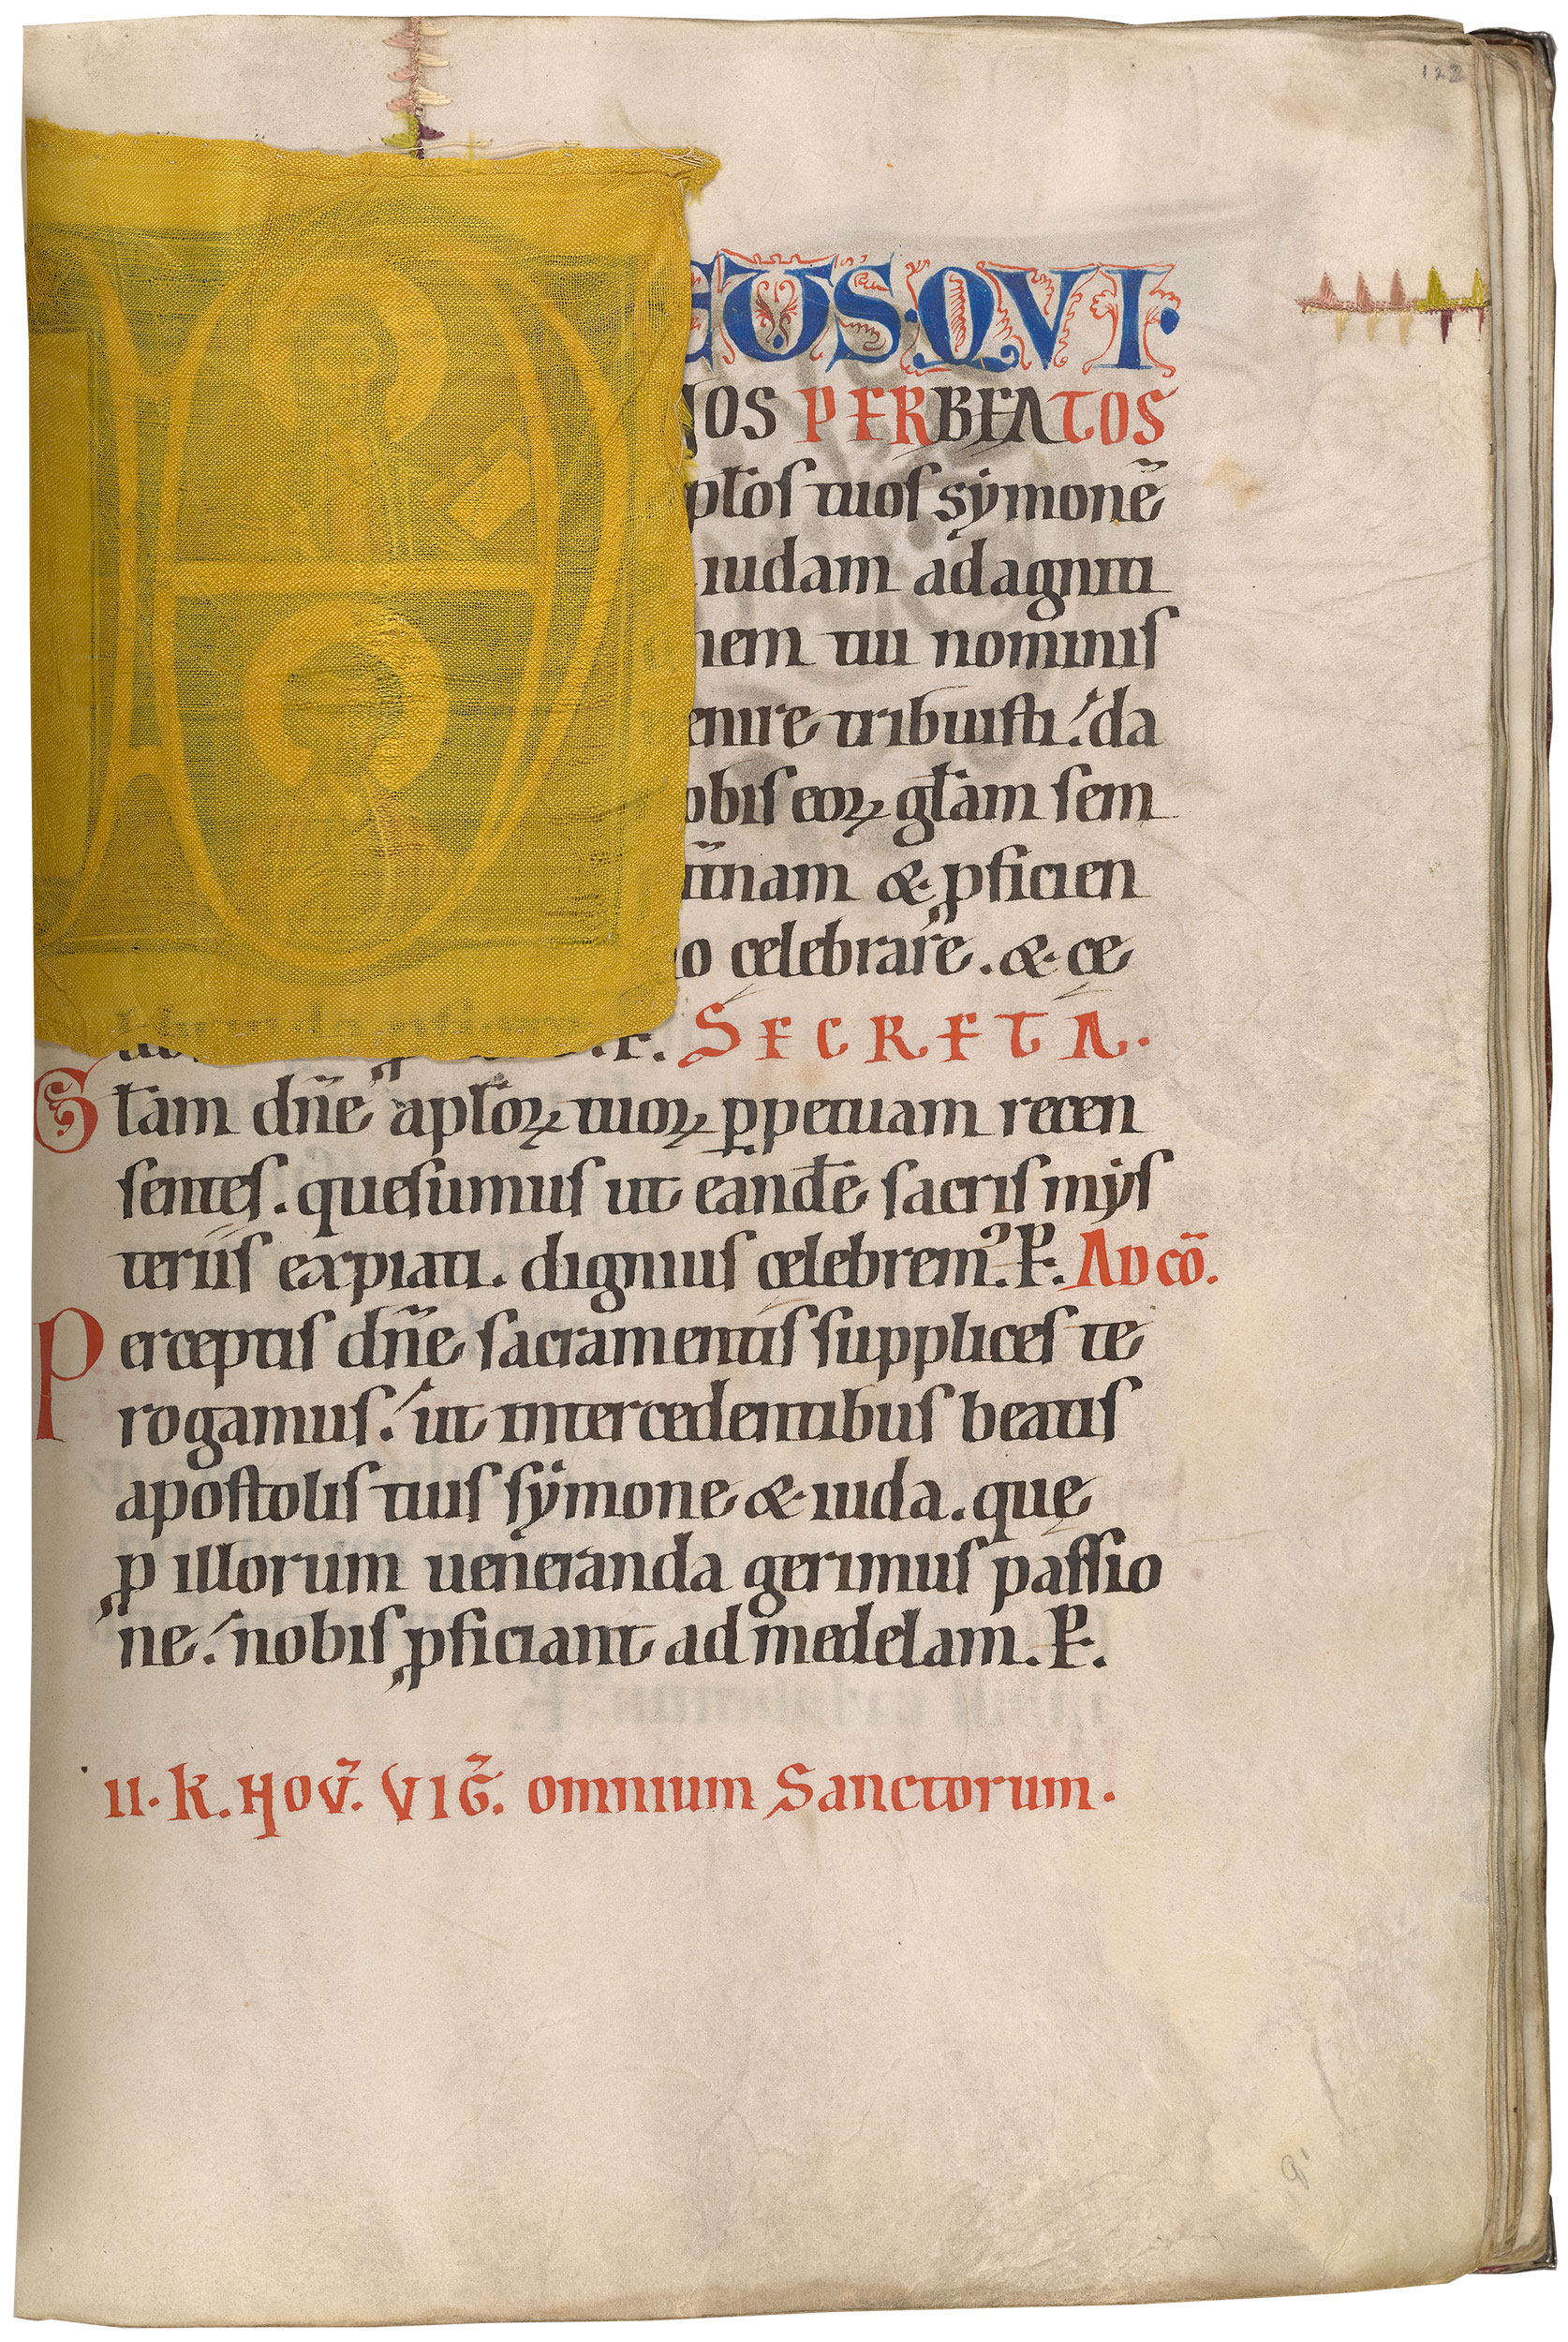 122
EUS·QVI·
NOS PERBEATOS
apłos tuos symonē
iudam ad agniti
nem tui nominis
enire tribuisti. da
obis eoꝝ głam sem
& ꝓficien
celebrare. & ce
P. SECRETA.
Głam dn̄e apłoꝝ tuoꝝ ꝑpetuam recen
sentes. quesumus ut eandē sacris mys
teriis expiati. dignius celebremꝰ. P. AD cō.
Perceptis dn̄e sacramentis supplices te
rogamus. ut intercedentibus beatis
apostolis tuis symone & iuda. que
ꝓ illorum ueneranda gerimus passio
ne. nobis ꝓficiant ad medelam. P.
II. K. NOṼ. VIG̃. omnium Sanctorum.